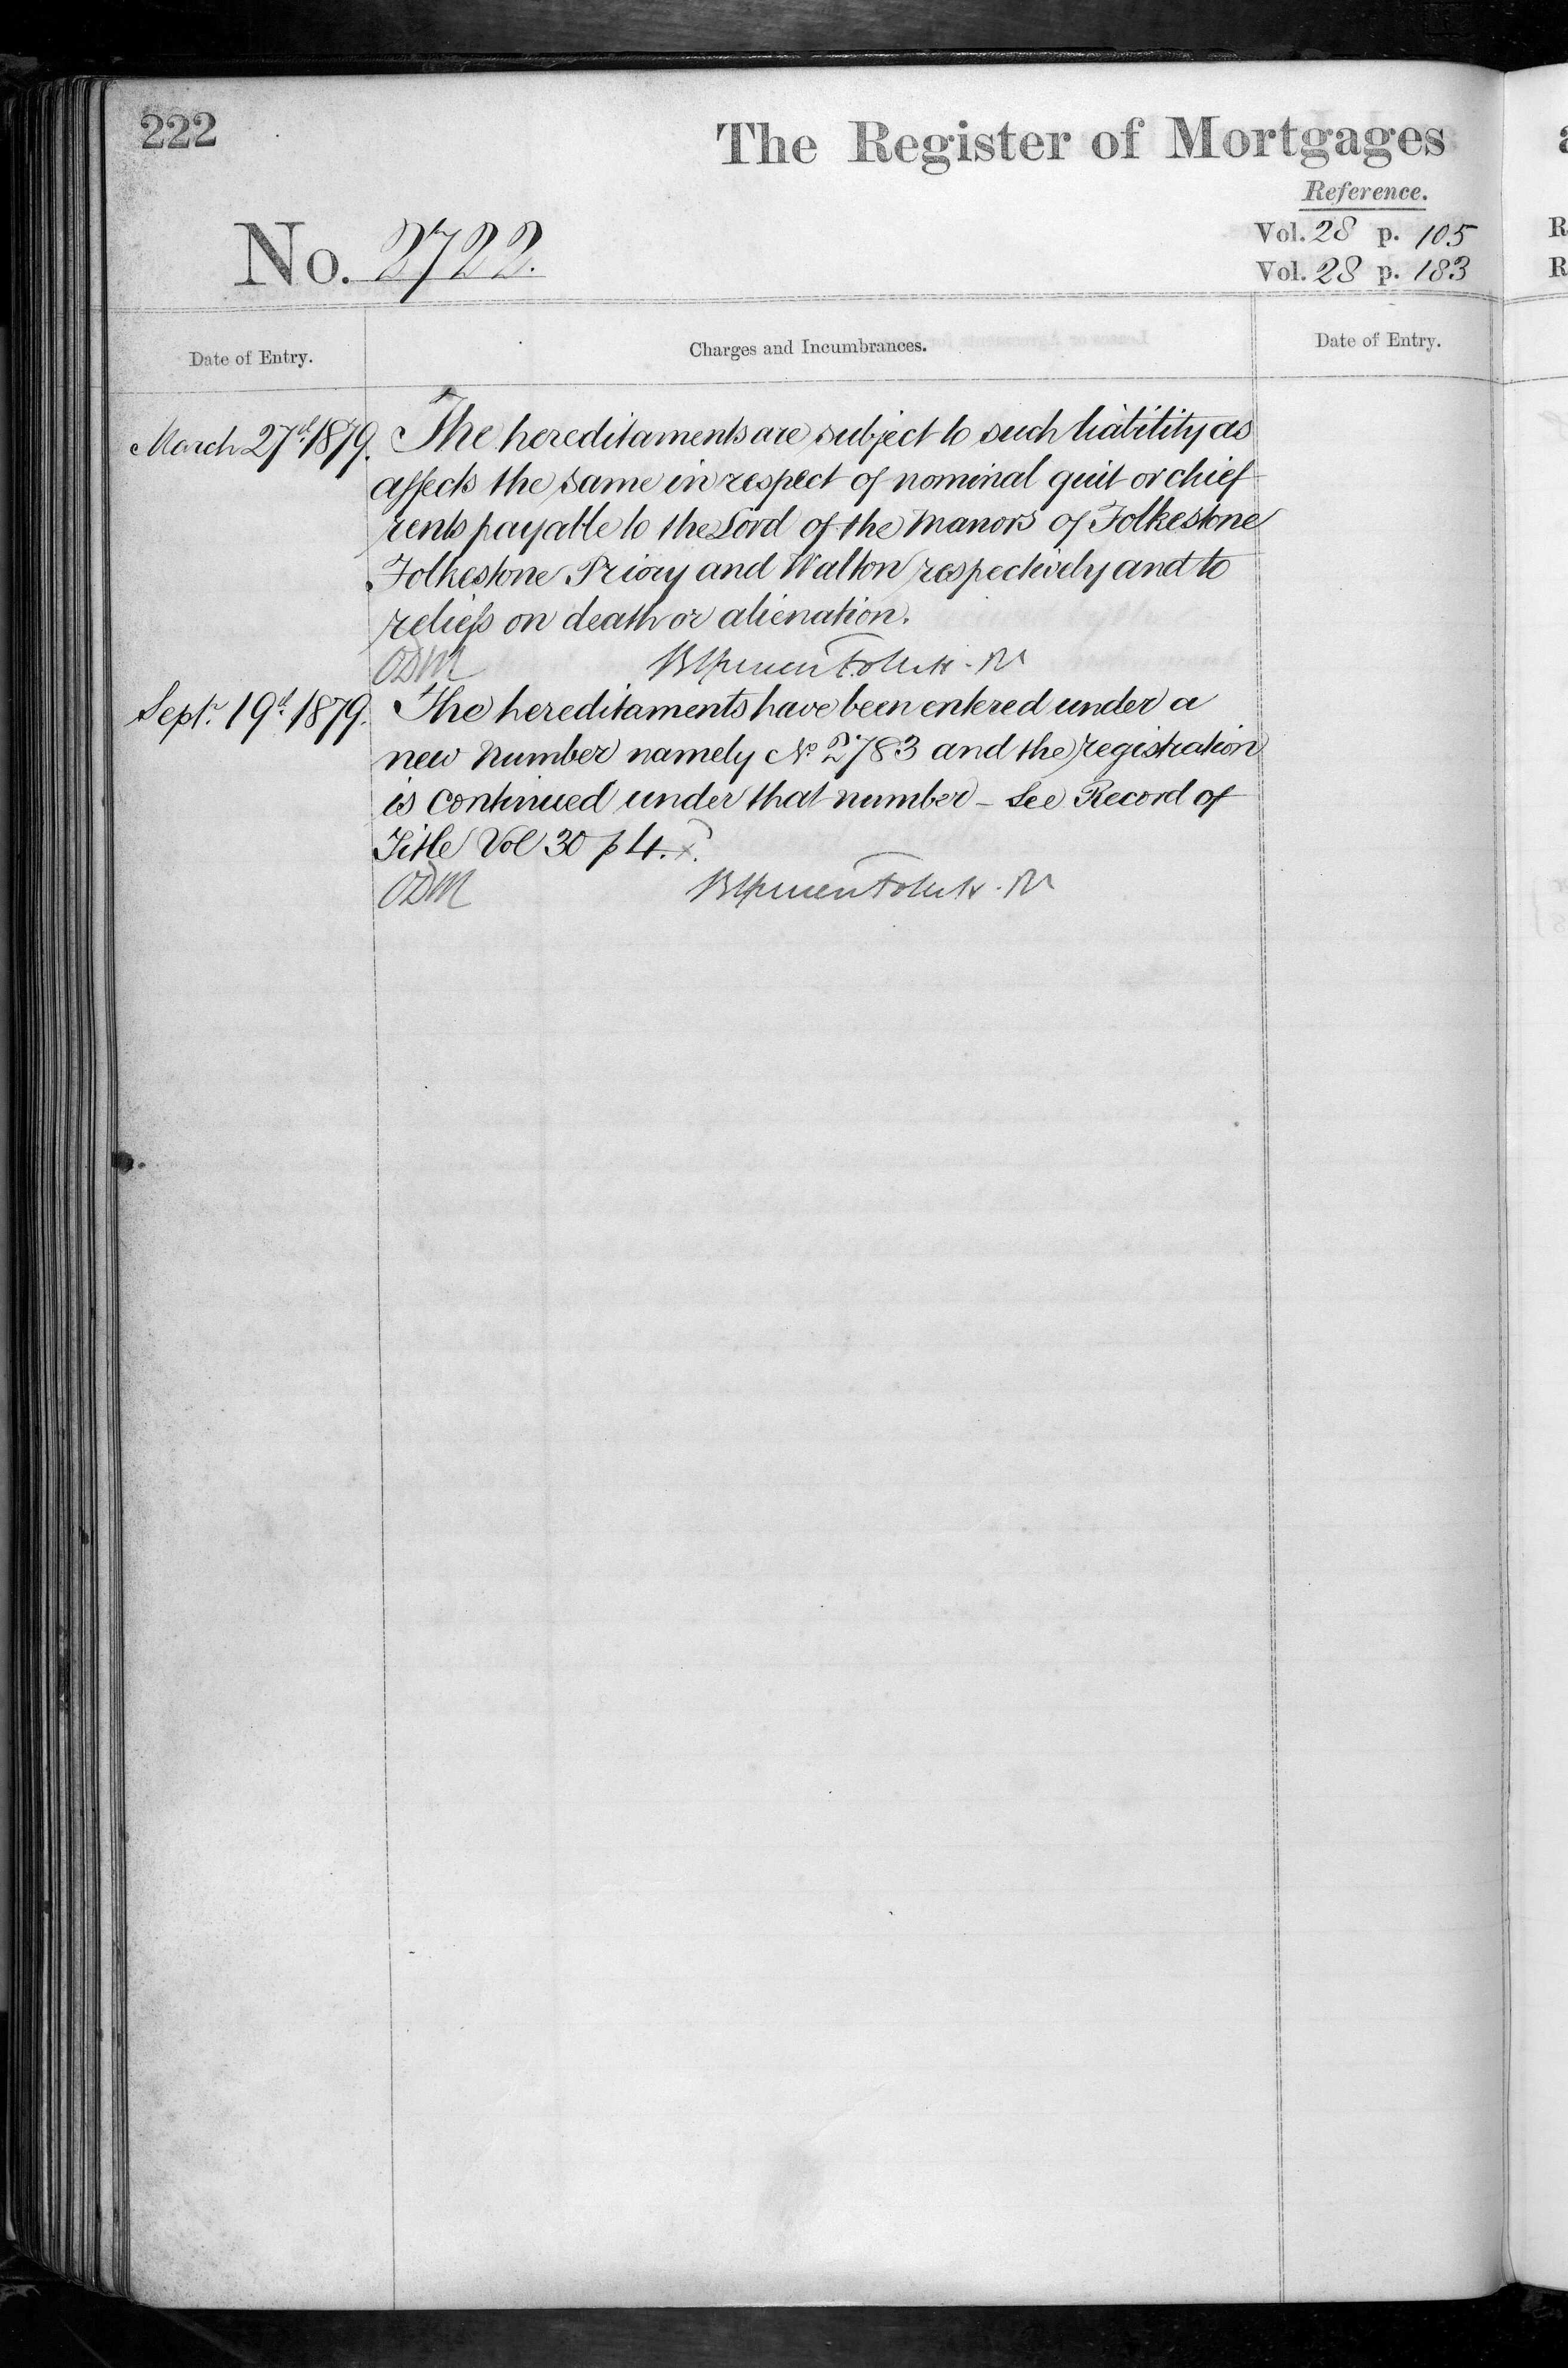 222
The Register of Mortgages
Reference.
No. 2722.
Vol. 28 p. 105
Vol. 28 p. 183
Date of Entry.
Charges and Incumbrances.
Date of Entry.
March 27th 1879. The hereditaments are subject to such liability as
affects the same in respect of nominal quit or chief
rents payable to the Lord of the Manors of Folkestone
Folkestone Priory and Walton respectively and to
reliefs on death or alienation.
ODM
Septr. 19th 1879. The hereditaments have been entered under a
new number namely No 2783 and the registration
is continued under that number – See Record of
Title Vol 30 p 4. x.
ODM
R
R